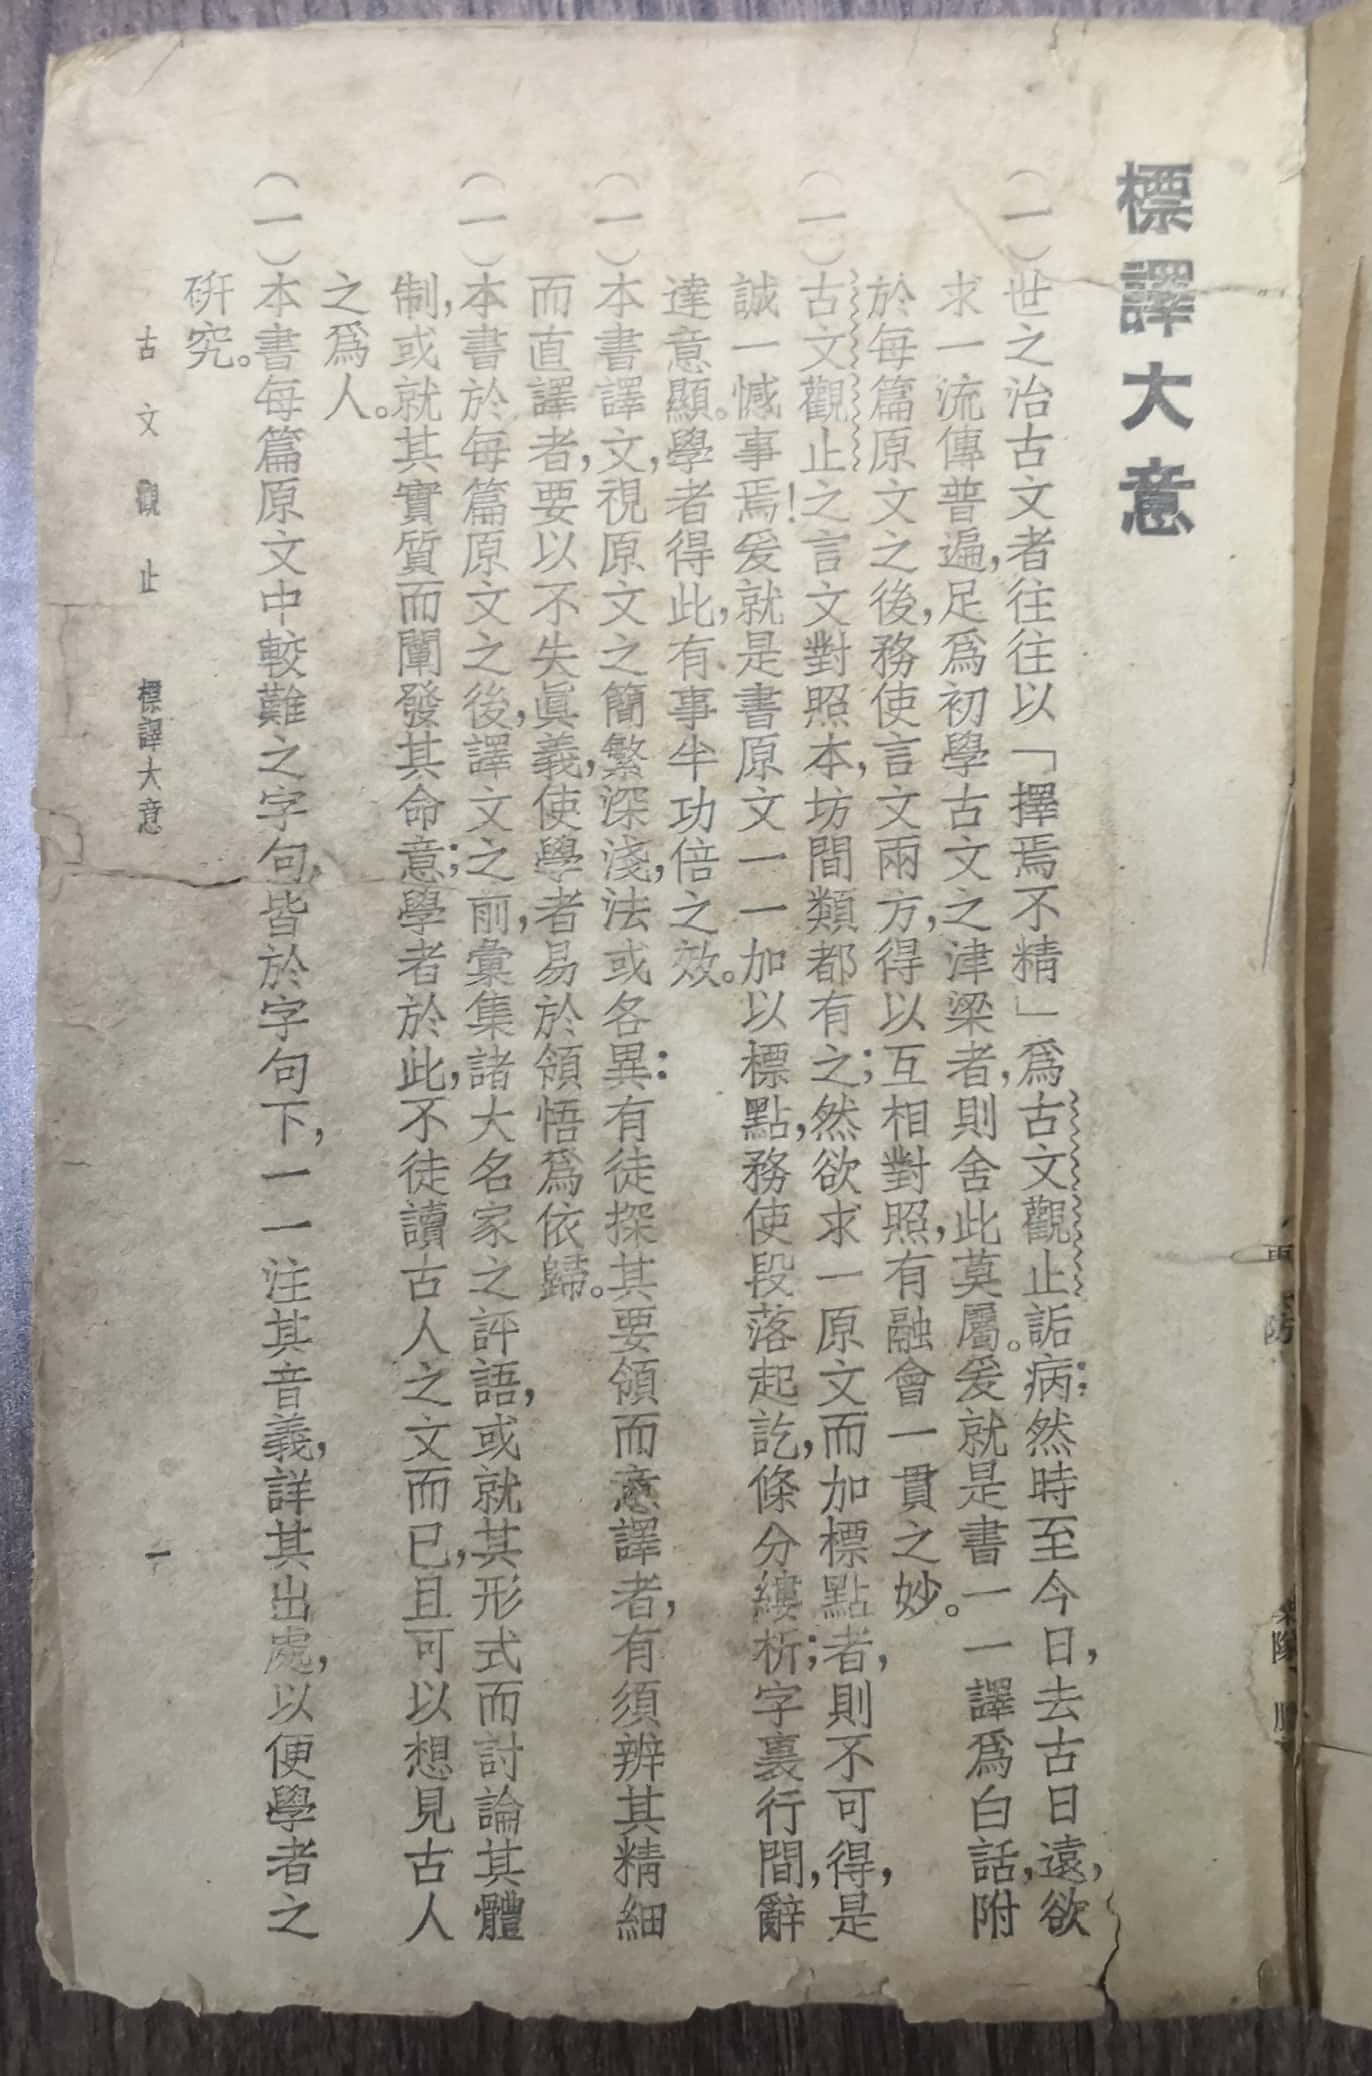 標譯大意
(一)世之治古文者往往以「擇焉不精」爲古文觀止詬病:然時至今日,去古日遠,欲
求一流傳普遍,足爲初學古文之津梁者,則舍此莫屬。爰就是書一一譯爲白話,附
於每篇原文之後,務使言文兩方,得以互相對照,有融會一貫之妙。
(一)古文觀止之言文對照本,坊間類都有之;然欲求一原文而加標點者,則不可得,是
誠一憾事焉!爰就是書原文一一加以標點,務使段落起訖,條分縷析;字裏行間,辭
達意顯。學者得此,有事半功倍之效。
(一)本書譯文,視原文之簡繁深淺,法或各異:有徒探其要領而意譯者,有須辨其精細
而直譯者,要以不失眞義,使學者易於領悟爲依歸。
(一)本書於每篇原文之後,譯文之前,彙集諸大名家之評語,或就其形式而討論其體
制,或就其實質而闡發其命意;學者於此,不徒讀古人之文而已,且可以想見古人
之爲人。
(一)本書每篇原文中較難之字句,皆於字句下,一一注其音義,詳其出處,以便學者之
研究。
古文觀止 標譯大意 一